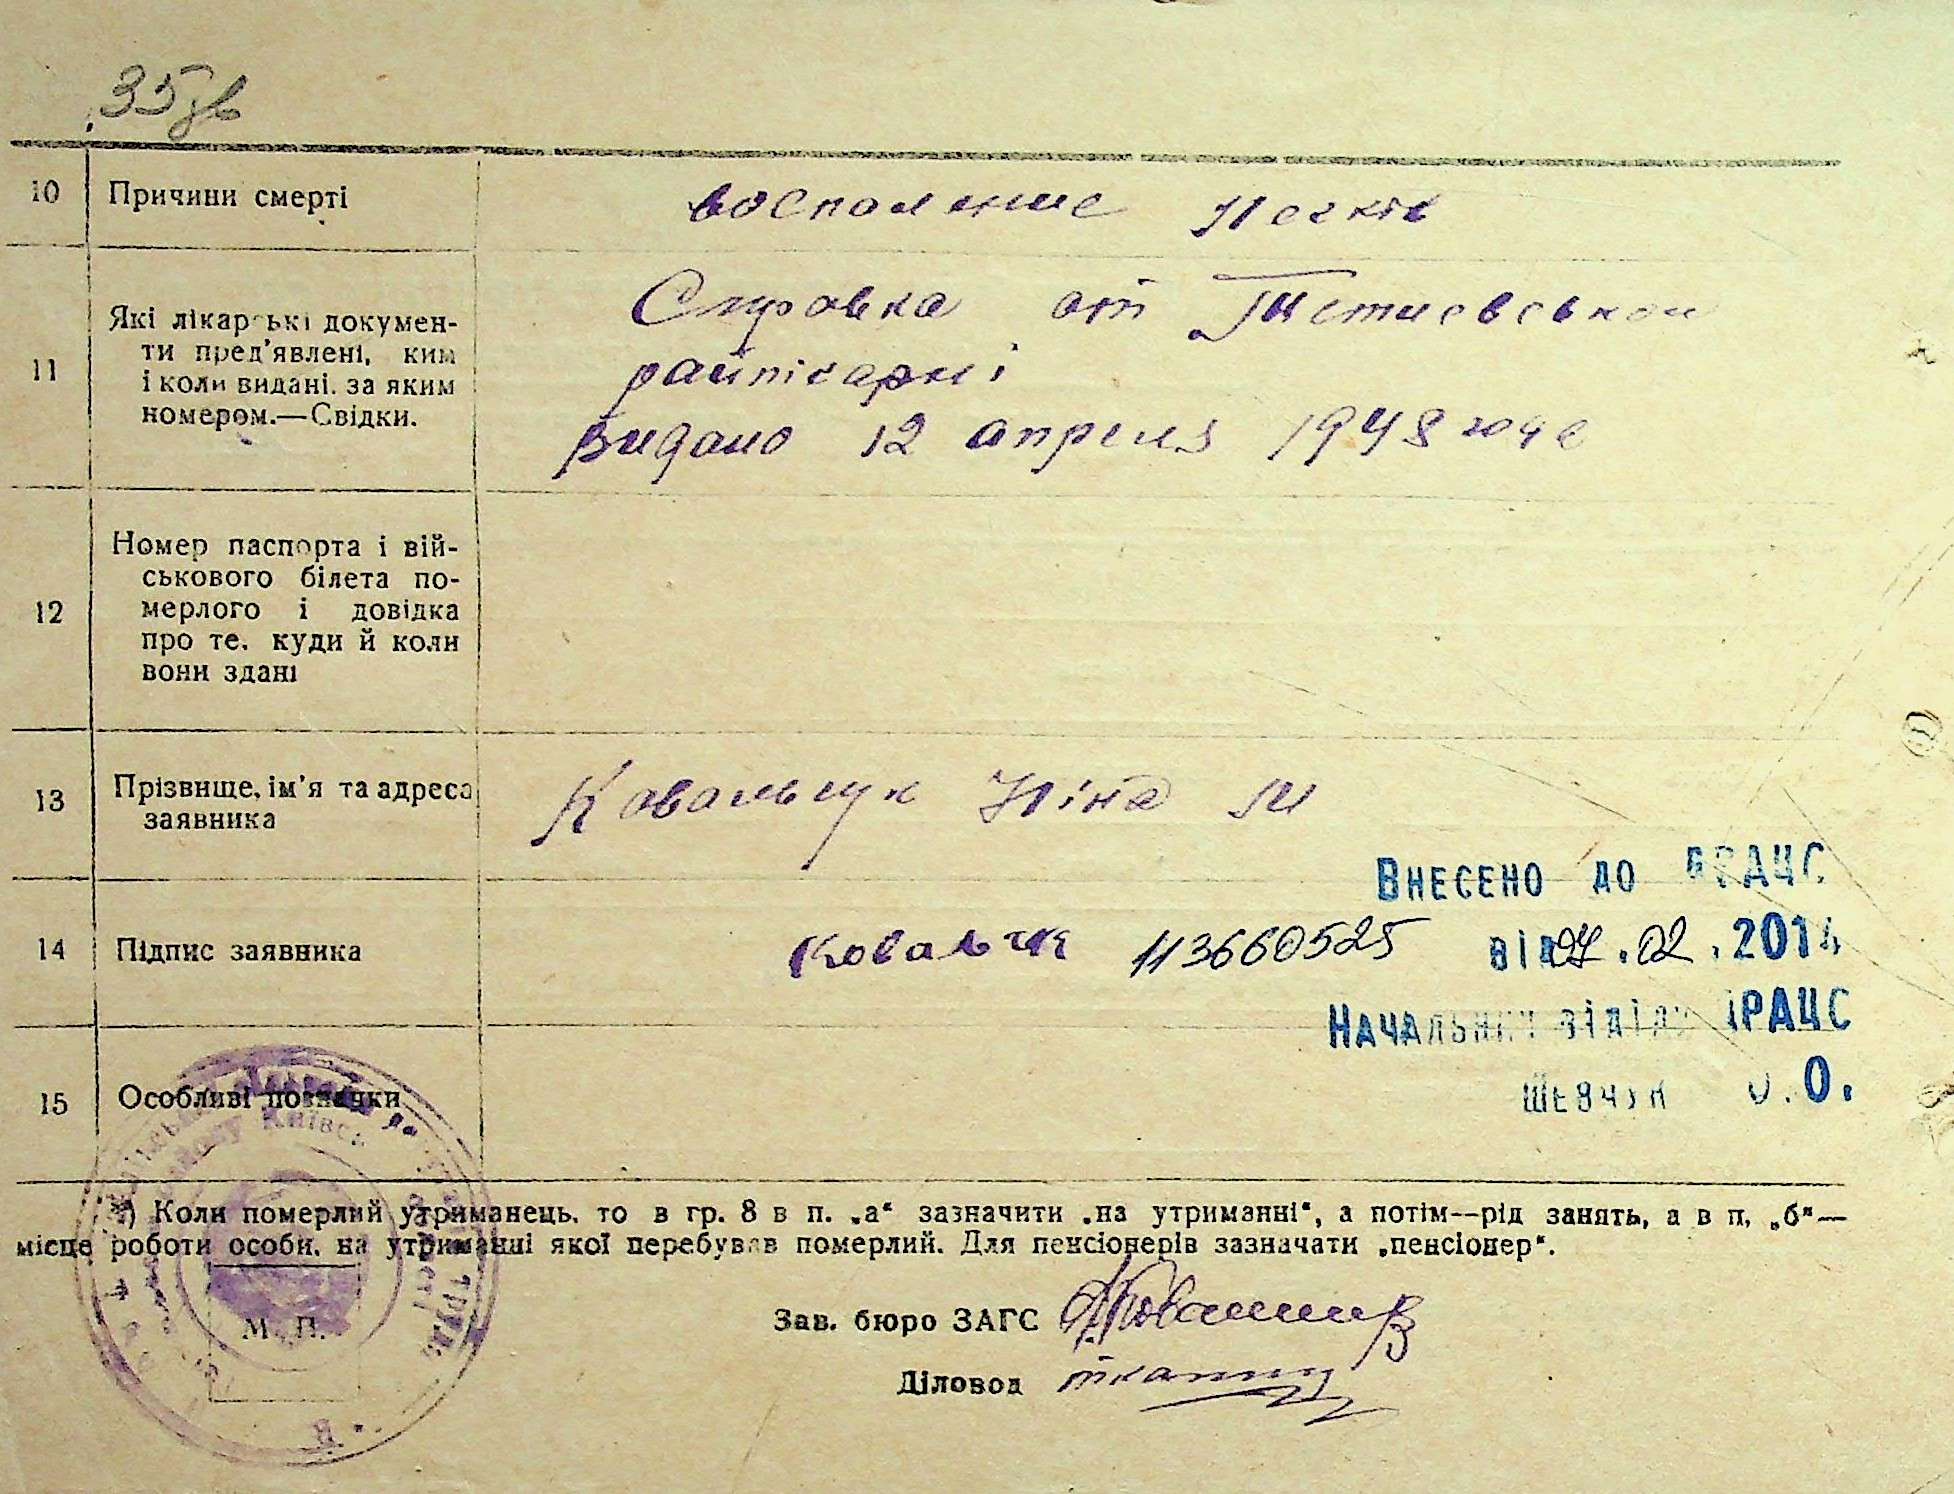 35
10 Причини смерті
восполение легків
11 Які лікарські докумен-
ти пред'явлені, ким
і коли видані, за яким
номером.—Свідки.
Справка от Тетиевськои
райлікарні
видано 12 апреля 1948 юче
12 Номер паспорта і вій-
ськового білета по-
мерлого і довідка
про те, куди й коли
вони здані
13 Прізвище, ім'я та адреса
заявника
Ковальчук Ніна М
Внесено до ДРАЦС
14 Підпис заявника
Ковальчк 113660525 від 07.02.2014
Начальник відділу ДРАЦС
15 Особливі позначки
Шевчук О.О.
*) Коли померлий утриманець, то в гр. 8 в п. „а“ зазначити „на утриманні“, а потім—рід занять, а в п. „б“—
місце роботи особи, на утриманні якої перебував померлий. Для пенсіонерів зазначати „пенсіонер“.
М. П.
Зав. бюро ЗАГС
Діловод